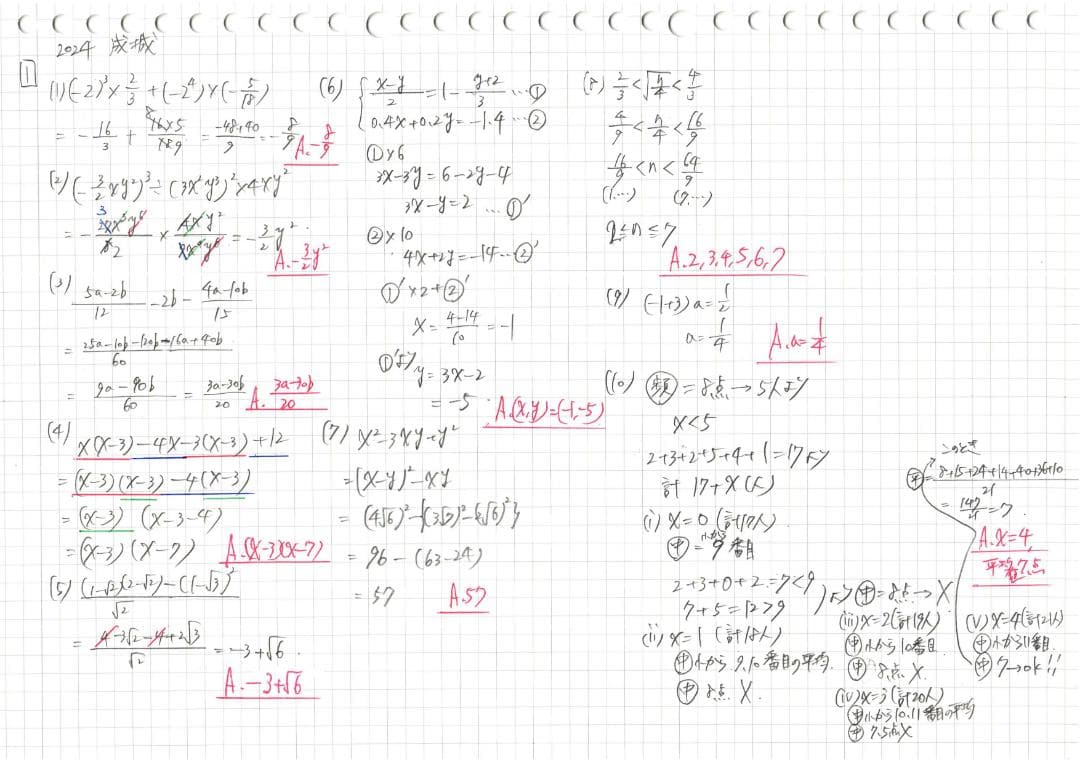 2024 成城
1
(1) (-2)³ × 2/3 + (-2⁴) × (-5/18)
= -16/3 + 16×5/18 9 = (-48+40)/9 = -8/9
A. -8/9
(2) (-3/2 xy²)³ ÷ (3x²y³)² × 4xy²
× 4xy² = -3/2 y²
A. -3/2 y²
(3) (5a-2b)/12 - 2b - (4a-10b)/15
= (25a-10b-120b-16a+40b)/60
= (9a-90b)/60 = (3a-30b)/20
A. (3a-30b)/20
(4) x(x-3)-4x-3(x-3)+12
= (x-3)(x-3)-4(x-3)
= (x-3) (x-3-4)
= (x-3)(x-7)
A. (x-3)(x-7)
(5) ((1-√2)(2-√2)-(1-√3)²)/√2
= (4-3√2-4+2√3)/√2 = -3+√6
A. -3+√6
(6) { (x-y)/2 = 1 - (y+2)/3 … ①
0.4x+0.2y=-1.4 … ②
①×6
3x-3y=6-2y-4
3x-y=2 … ①′
②×10
4x+2y=-14 … ②′
①′×2+②′
x = (4-14)/10 = -1
①′より y=3x-2
= -5
A. (x,y)=(-1,-5)
(7) x²-3xy+y²
= (x-y)²-xy
= (4√6)²-{(3√7)²-(2√6)²}
= 96-(63-24)
= 57
A. 57
(8) 2/3 < √(n/4) < 4/3
4/9 < n/4 < 16/9
16/9 < n < 64/9
(1,…) (7,…)
2≦n≦7
A. 2,3,4,5,6,7
(9) (-1+3)a = 1/2
a = 1/4
A. a = 1/4
(10) 頻=8点→5人より
x<5
2+3+2+5+4+1=17より
計 17+x (人)
(i) x=0 (計17人)
中=小から9番目
2+3+0+2=7<9
7+5=12>9
より 中=8点→X
(ii) x=1 (計18人)
中小から9,10番目の平均
中 8点 X.
(iii) x=2 (計19人)
中小から10番目
中 8点 X.
(iv) x=3 (計20人)
中小から10,11番目の平均
中 7.5点X
(V) x=4 (計21人)
中小から11番目
中 7→ok!!
このとき
平=(8+15+24+14+40+36+10)/21
= 147/21 = 7
A. x=4,
平均値7点